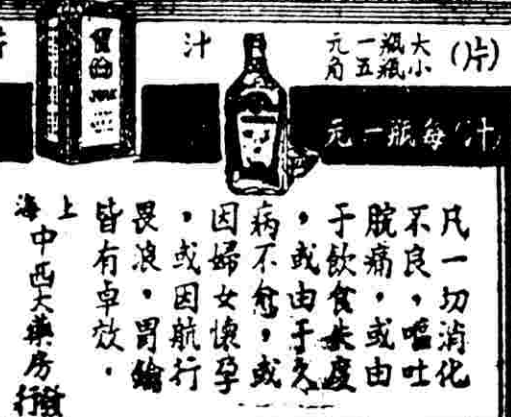 (片)
大瓶一元
小瓶五角
汁
(汁)每瓶一元
凡一切消化
不良，嘔吐
脘痛，或由
于飲食失度
，或由于久
病不愈，或
因婦女懷孕
，或因航行
畏浪，胃
皆有卓效。
上海
中西大藥房發行